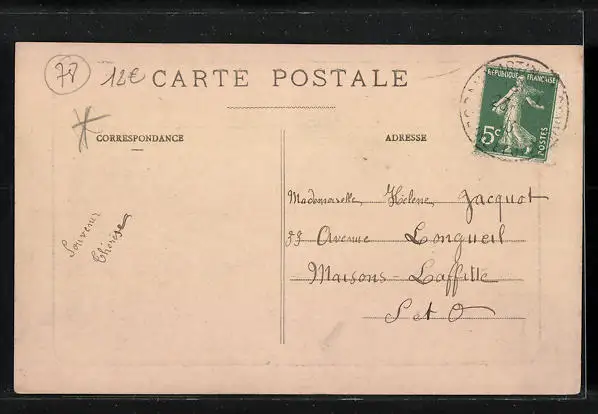 77 12€ CARTE POSTALE
CORRESPONDANCE
ADRESSE
RÉPUBLIQUE FRANÇAISE
5c
POSTES
Mademoiselle Hélène Jacquot
Avenue Longueil
Maisons-Laffitte
S et O
Souvenir
Thérèse